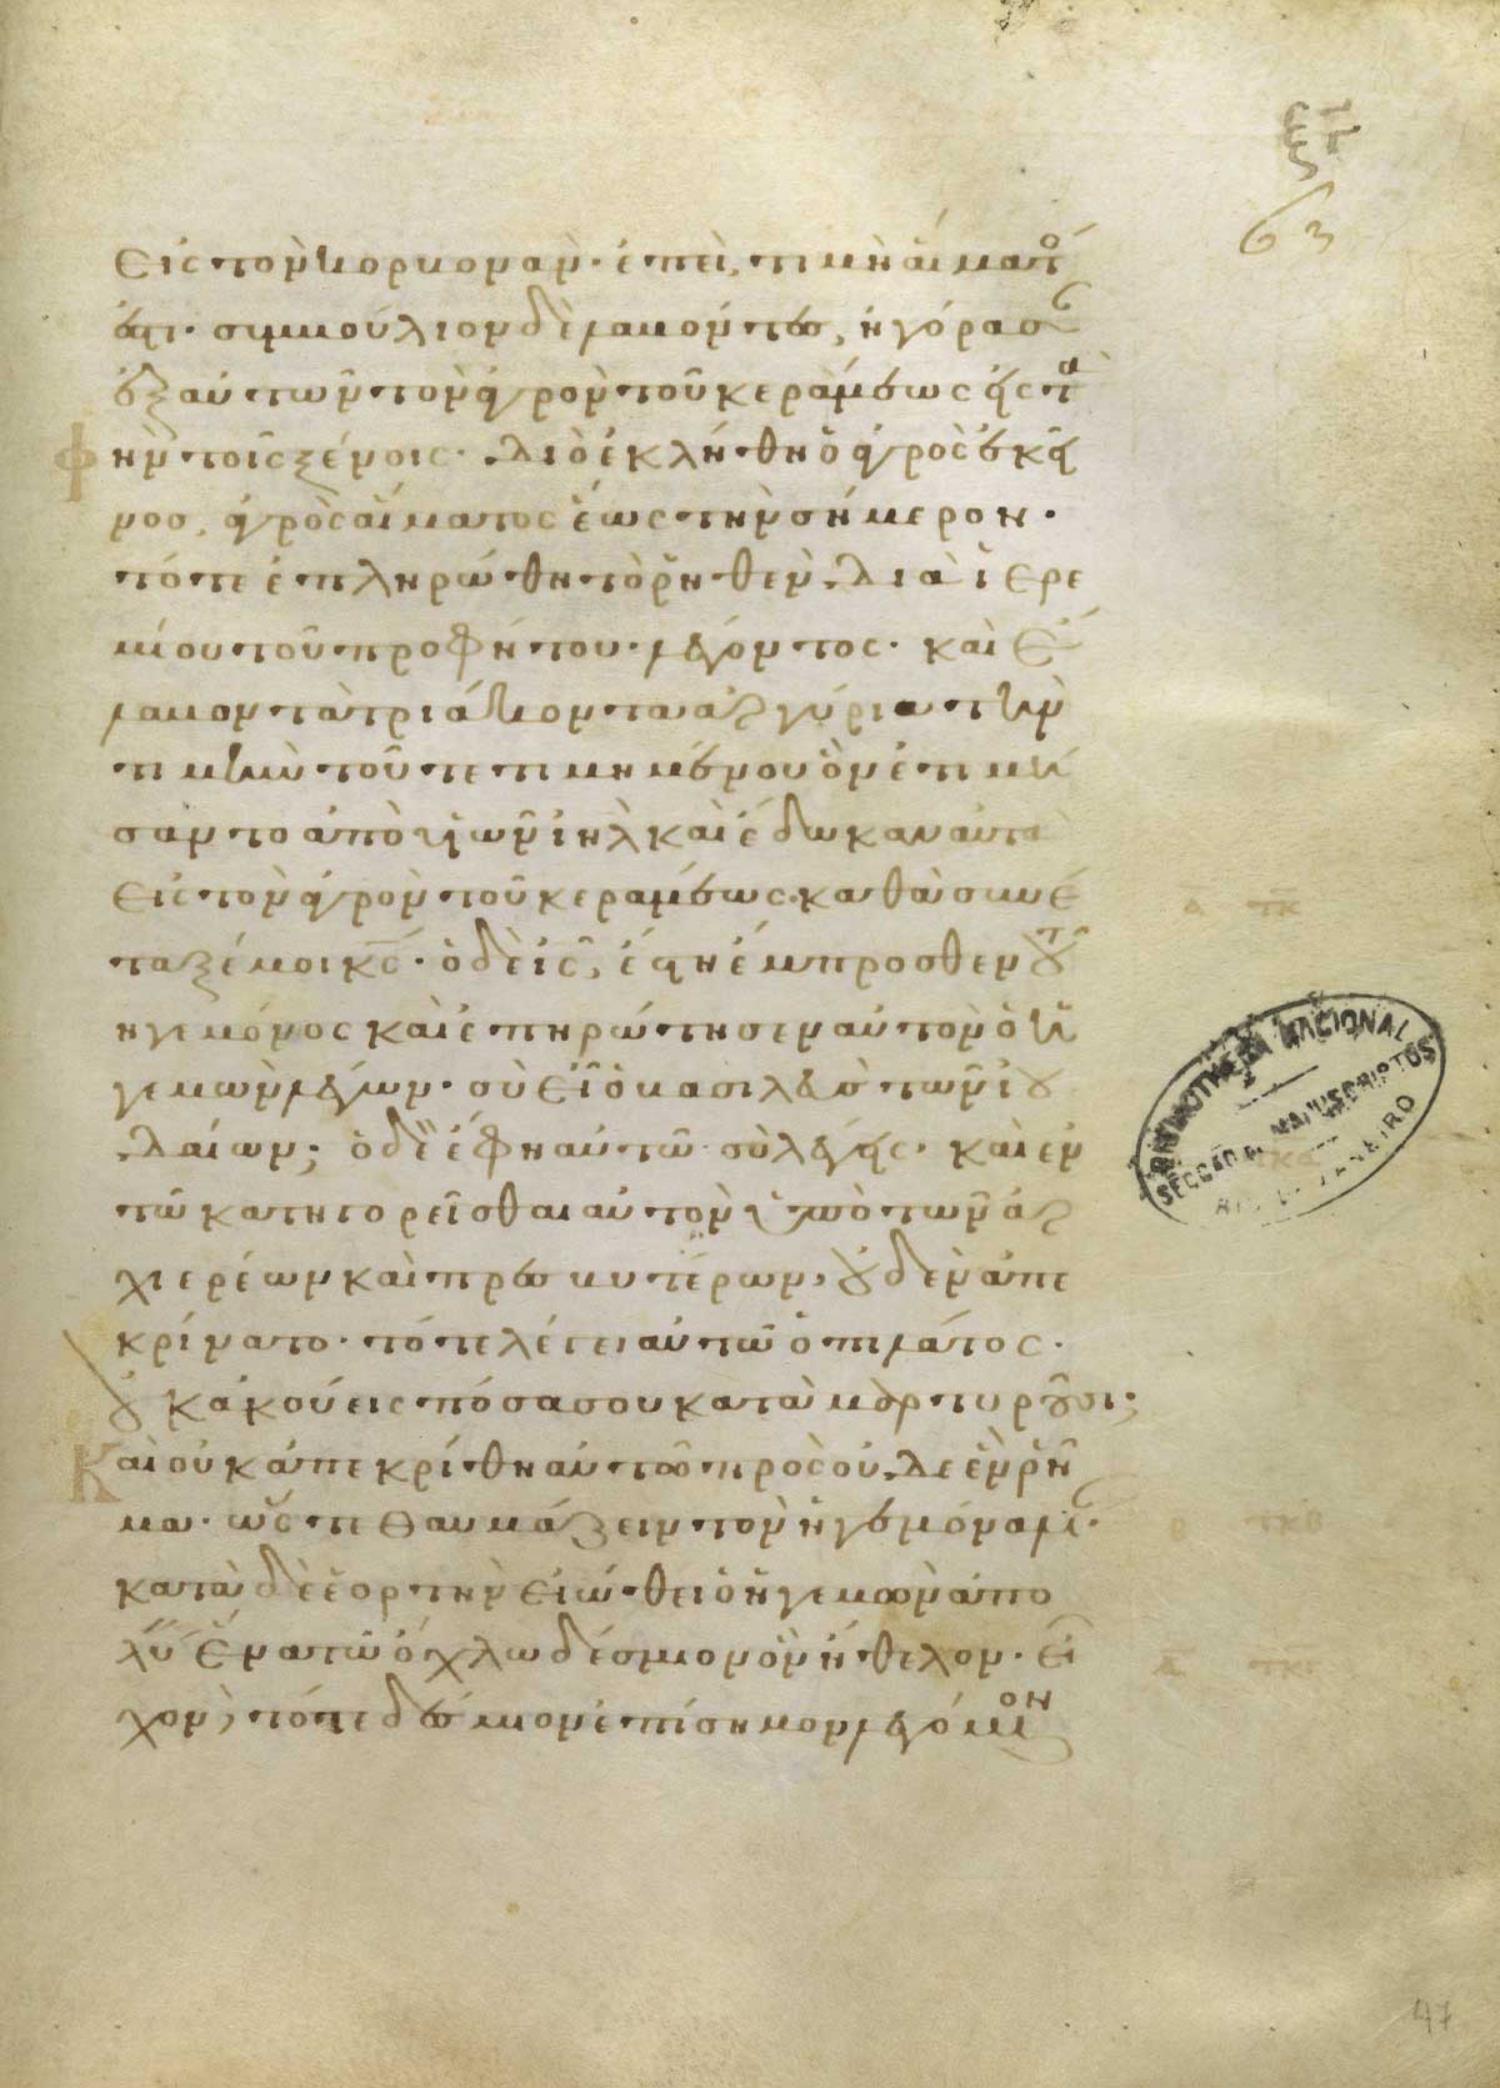 ξγ
63
εἰς τὸν κορβονὰν· ἐπεὶ, τιμὴ αἵματο
ἐστι· συμβούλιον δὲ λαβόντεσ, ἠγόρασ
ἐξ αὐτῶν τὸν ἀγρὸν τοῦ κεραμέως εἰς τα
φὴν τοῖς ξένοις· διὸ ἐκλήθη ὁ ἀγρὸς ἐκεῖ
νοσ, ἀγρὸς αἵματος ἕως τὴν σήμερον·
τότε ἐπληρώθη τὸ ῥηθὲν διὰ ἱερε
μίου τοῦ προφήτου· λέγοντος· καὶ ἔ
λαβον τὰ τριάκοντα ἀργύρια τὴν
τιμὴν τοῦ τετιμημένου ὃν ἐτιμή
σαντο ἀπὸ υἱῶν ιηλ καὶ ἔδωκαν αὐτὰ
εἰς τὸν ἀγρὸν τοῦ κεραμέως· καθὰ συνέ
ταξέ μοι κς· ὁ δὲ ις, ἔστη ἔμπροσθεν τοῦ
ἡγεμόνος καὶ ἐπηρώτησεν αὐτὸν ὁ ἡ
γεμὼν λέγων· σὺ εἶ ὁ βασιλεὺσ τῶν ἰου
δαίων; ὁ δὲ ἔφη αὐτῶ· σὺ λέγεις· καὶ ἐν
τῶ κατηγορεῖσθαι αὐτὸν ὑπὸ τῶν ἀρ
χιερέων καὶ πρεσβυτέρων, οὐδὲν ἀπε
κρίνατο· τότε λέγει αὐτῶ ὁ πιλάτος·
οὐκ ἀκούεις πόσα σου καταμαρτυροῦσι;
Καὶ οὐκ ἀπεκρίθη αὐτῶ πρὸς οὐδὲ ἓν ῥῆ
μα· ὥστε θαυμάζειν τὸν ἡγεμόνα λί·
κατὰ δὲ ἑορτὴν εἰώθει ὁ ἡγεμὼν ἀπο
λύειν ἕνα τῶ ὄχλω δέσμιον ὃν ἤθελον· εἶ
χον, τότε δέσμιον ἐπίσημον λεγόμενον
BIBLIOTHECA NACIONAL
SECCÃO MANUSCRIPTOS
RIO DE JANEIRO
47